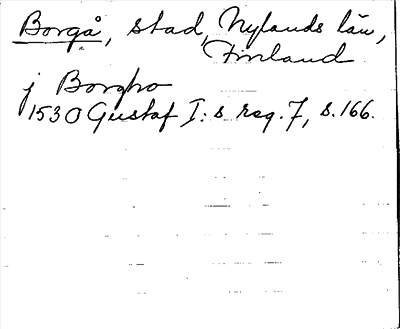 Borgå, stad, Nylands län,
Finland
j Borgho
1530 Gustaf I:s reg. 7, s. 166.